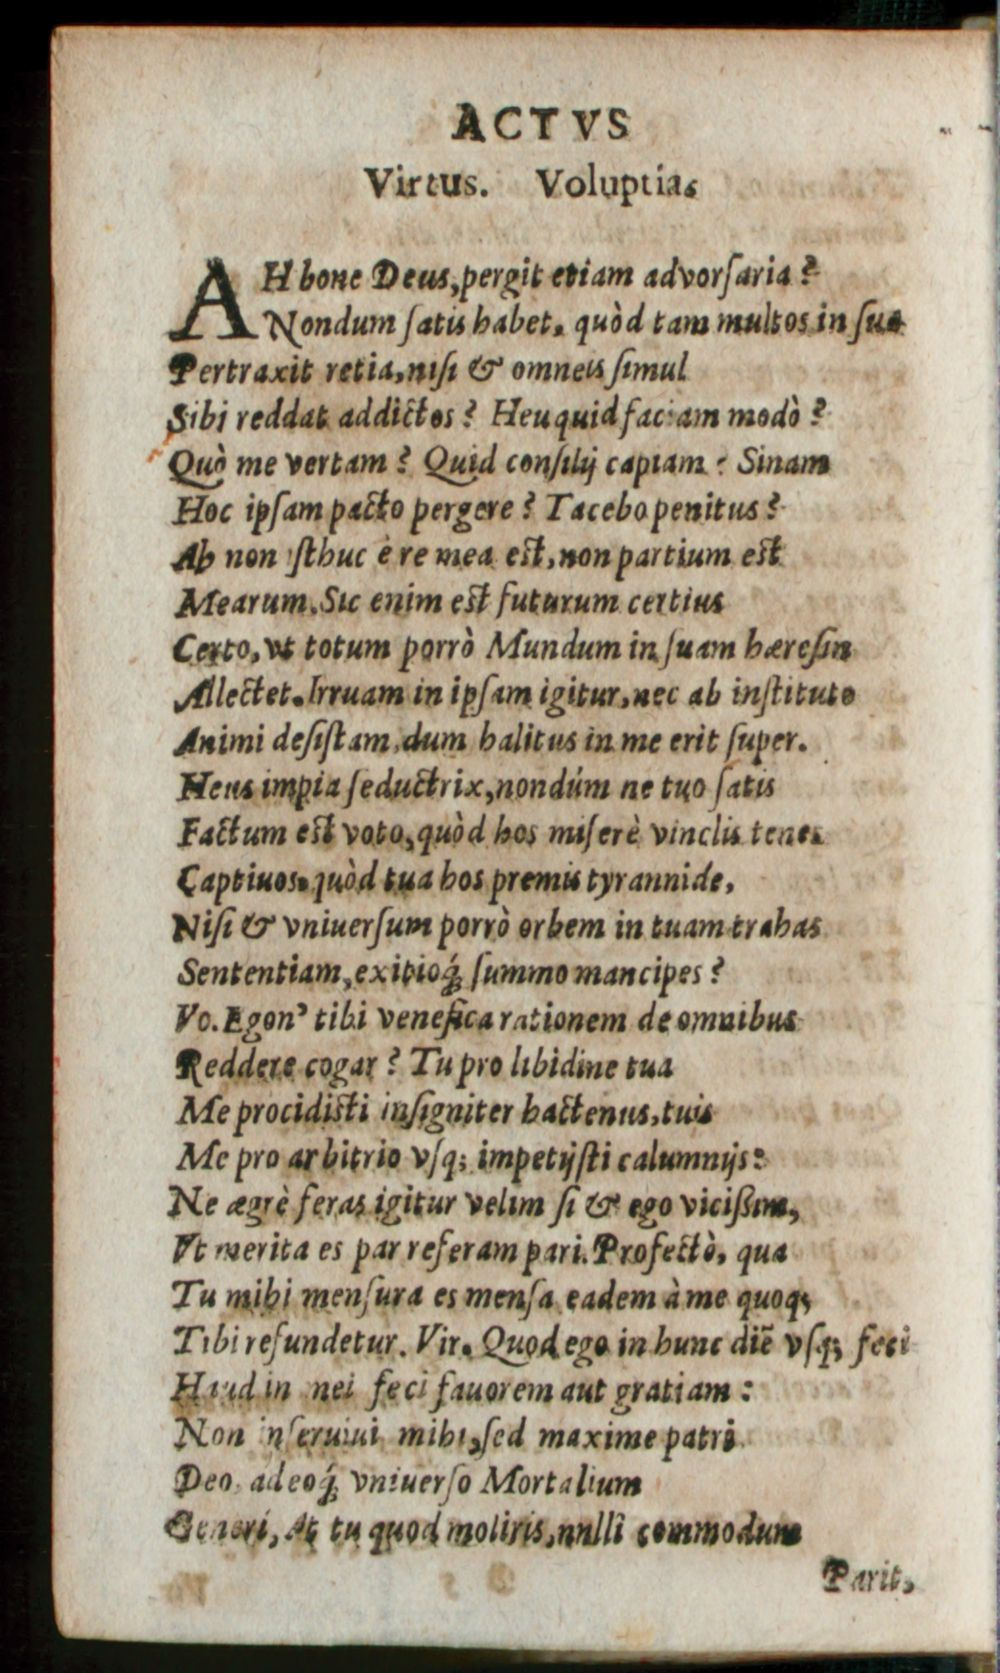 ACTVS
Virtus. Voluptias
AH bone Deus, pergit etiam advorſaria?
Nondum ſatis habet, quòd tam multos in ſua
Pertraxit retia, niſi & omneis ſimul
Sibi reddat addictos? Heu quid faciam modò?
Quò me vertam? Quid conſilij capiam? Sinam
Hoc ipſam pacto pergere? Tacebo penitus?
Ah non ſthuc è re mea est, non partium est
Mearum. Sic enim est futurum certius
Certo, vt totum porrò Mundum in ſuam hæreſin
Allectet. Irruam in ipſam igitur, nec ab inſtituto
Animi deſiſtam, dum halitus in me erit ſuper.
Heus impia ſeductrix, nondúm ne tuo ſatis
Factum est voto, quòd hos miſerè vinclis tenes
Captiuos, quòd tua hos premis tyrannide,
Niſi & vniuerſum porrò orbem in tuam trahas
Sententiam, exitioq́; ſummo mancipes?
Vo. Egon' tibi venefica rationem de omnibus
Reddere cogar? Tu pro libidine tua
Me procidisti inſigniter hactenus, tuis
Me pro arbitrio vſq; impetijſti calumnijs:
Ne ægrè feras igitur velim ſi & ego vicißim,
Vt merita es par referam pari. Profectò, qua
Tu mihi menſura es menſa eadem à me quoq;
Tibi refundetur. Vir. Quod ego in hunc diē vſq; feci
Haud in mei feci fauorem aut gratiam:
Non inſeruiui mihi, ſed maxime patri
Deo, adeoq́; vniuerſo Mortalium
Generi, At tu quod moliris, nulli commodum
Parit,